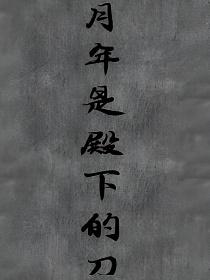 月年是殿下的刀